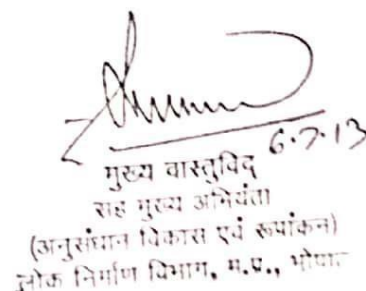 6.7.13
मुख्य वास्तुविद्
सह मुख्य अभियंता
(अनुसंधान विकास एवं रूपांकन)
लोक निर्माण विभाग, म.प्र., भोपाल